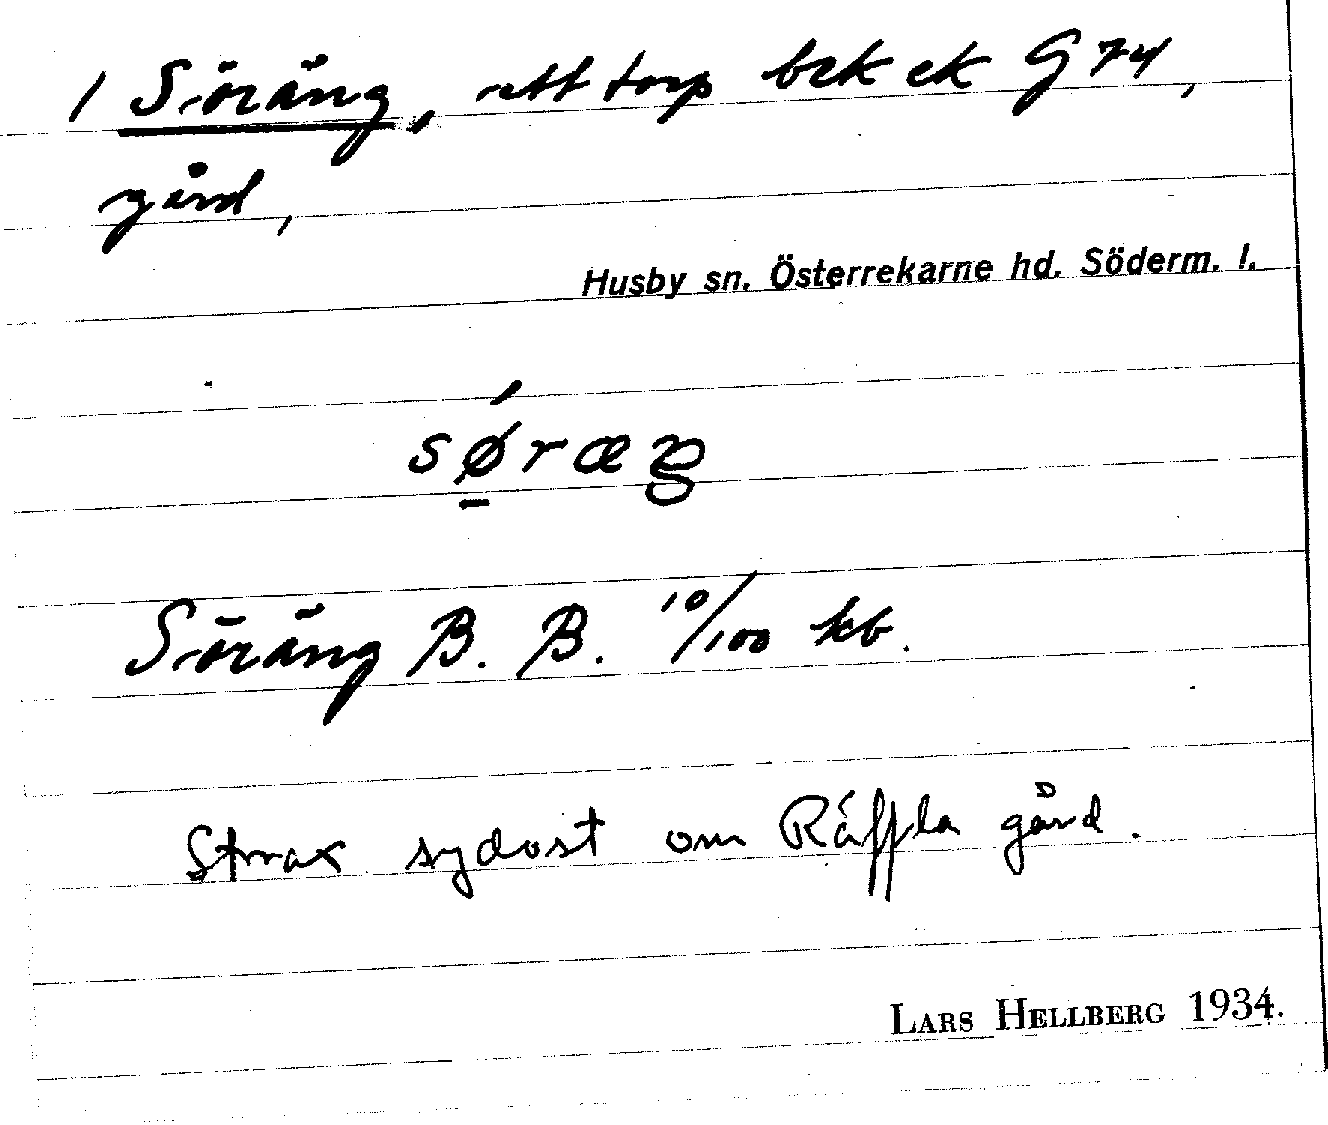 / Söräng, ett torp bek ek G 74,
gård,
Husby sn. Österrekarne hd. Söderm. l.
Söräng B. B. 10/100 kb.
Strax sydost om Räffla gård.
LARS HELLBERG 1934.